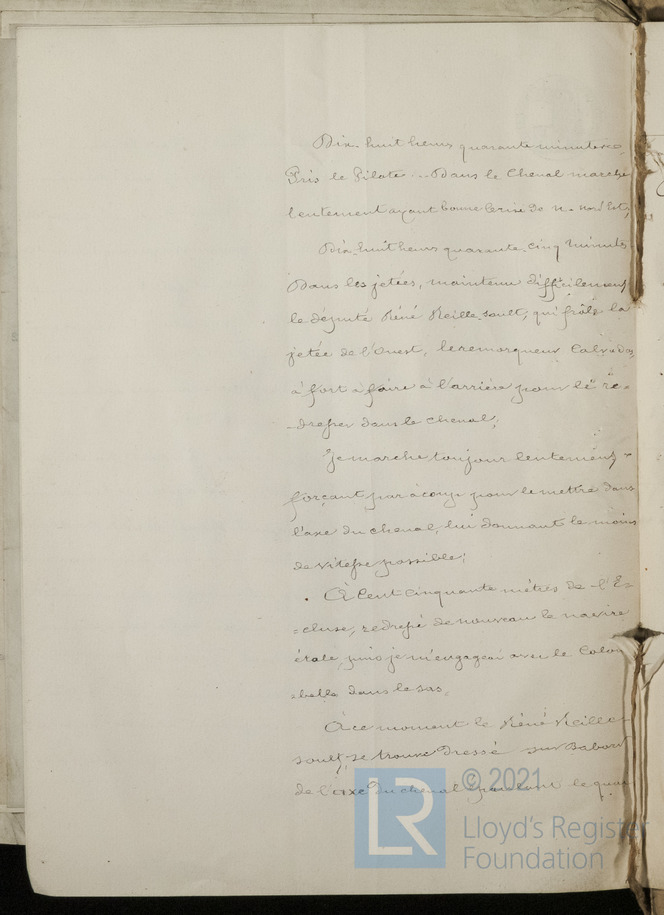 Dix-huit heures quarante minutes
Pris le Pilote... Dans le Chenal marche
lentement ayant bonne brise de N. Nord Est,
Dix-huit heures quarante-cinq minutes
Dans les jetées, maintenu difficilement
le député Réné Reille-Soult; qui frôle la
jetée de l'Ouest, le remorqueur Calvados
à fort à faire à l'arrière pour le re=
=dresser dans le chenal;
Je marche toujour lentement
forçant par àcoup pour le mettre dans
l'axe du chenal, lui donnant le moins
de vitesse possible;
À Cent cinquante mètres de l'É=
=cluse, redressé de nouveau le navire
étale, puis je m'engageai avec le Colom
=bella dans le sas.
À ce moment le Réné Reille-
Soult, se trouve dressé sur Babord
de l'axe du chenal le quai
© 2021
LR
Lloyd's Register
Foundation